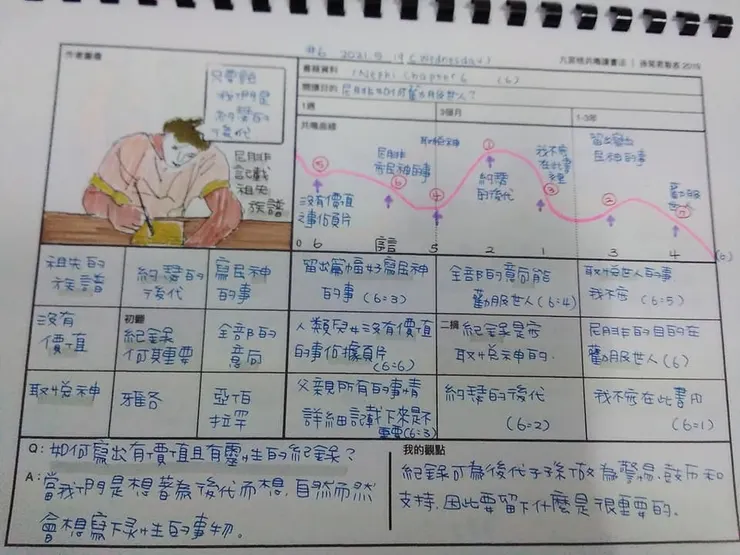 作者圖像
#6 2021.9.19 (Wednesday)
九宮格共鳴讀書法 | 孫易新製表 2019
書籍資料
1 Nephi Chapter 6 (6)
閱讀目的
尼腓如何勸服世人?
1週
3個月
1-3年
共鳴曲線
只要說
我們是
約瑟的
後代
尼腓
記載
祖先
族譜
⑤
沒有價值
之事佔頁片
尼腓
寫民神的事
⑥
取悅神
④
①
約瑟
的後代
我不寫
在此書
裡
③
留出篇幅
民神的事
②
勸服
世人
⑦
0 6 序言 5 2 1 3 4 (6)
祖先的
族譜
約瑟的
後代
寫民神
的事
留出篇幅好寫民神
的事 (6:3)
全部的意向能
勸服世人 (6:4)
取悅世人的事
我不寫 (6:5)
沒有
價值
初觀
紀錄
何其重要
全部的
意向
人類兒女沒有價值
的事佔據頁片
(6:6)
二摘
紀錄是寫
取悅神的.
尼腓的目的在
勸服世人 (6)
取悅神
雅各
亞伯
拉罕
父親所有的事情
詳細記載下來是不
重要 (6:3)
約瑟的後代
(6:2)
我不寫在此書中
(6:1)
Q: 如何寫出有價值且有靈性的紀錄?
A: 當我們是想著為後代而想, 自然而然
會想寫下永恆的事物.
我的觀點
紀錄可為後代子孫做為警惕、鼓勵和
支持, 因此要留下什麼是很重要的.